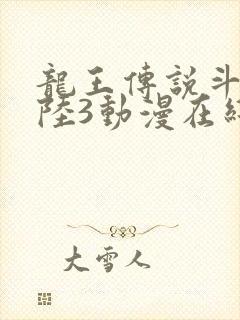 龍王傳説斗
陸3動漫在線
大雪人